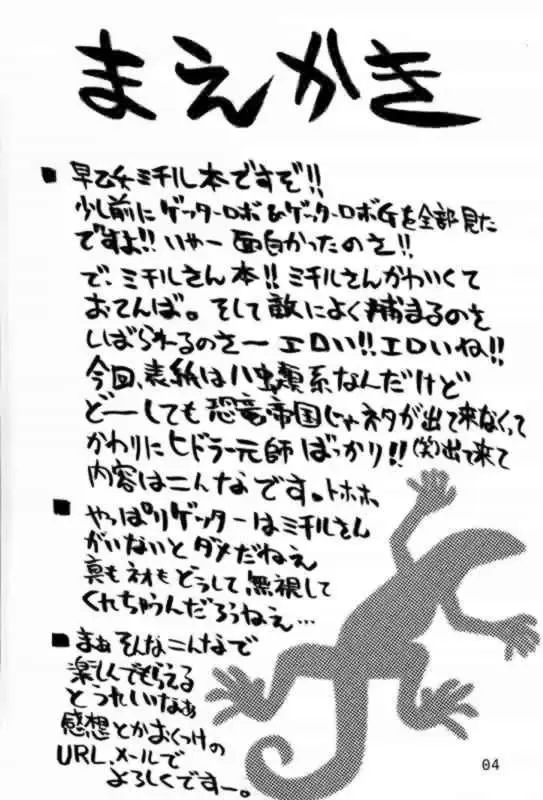 まえかき
■ 早乙女ミチル本ですぞ!!
少し前にゲッターロボ&ゲッターロボGを全部見た
ですよ!! いやー面白かったのさ!!
で、ミチルさん本!! ミチルさんかわいくて
おてんば。そして敵によく捕まるのさ
しばられるのさー エロい!! エロいね!!
今回、表紙はハ虫類系なんだけど
どーしても恐竜帝国じゃネタが出て来なくって
かわりにヒドラー元師ばっかり!! (笑)出て来て
内容はこんなです。トホホ。
■ やっぱりゲッターはミチルさん
がいないとダメだねえ
真もネオもどうして無視して
くれちゃうんだろうねえ…
■ まぁそんなこんなで
楽しんでもらえる
とうれしいなぁ
感想とかおくつけの
URL、メールで
よろしくですー。
04